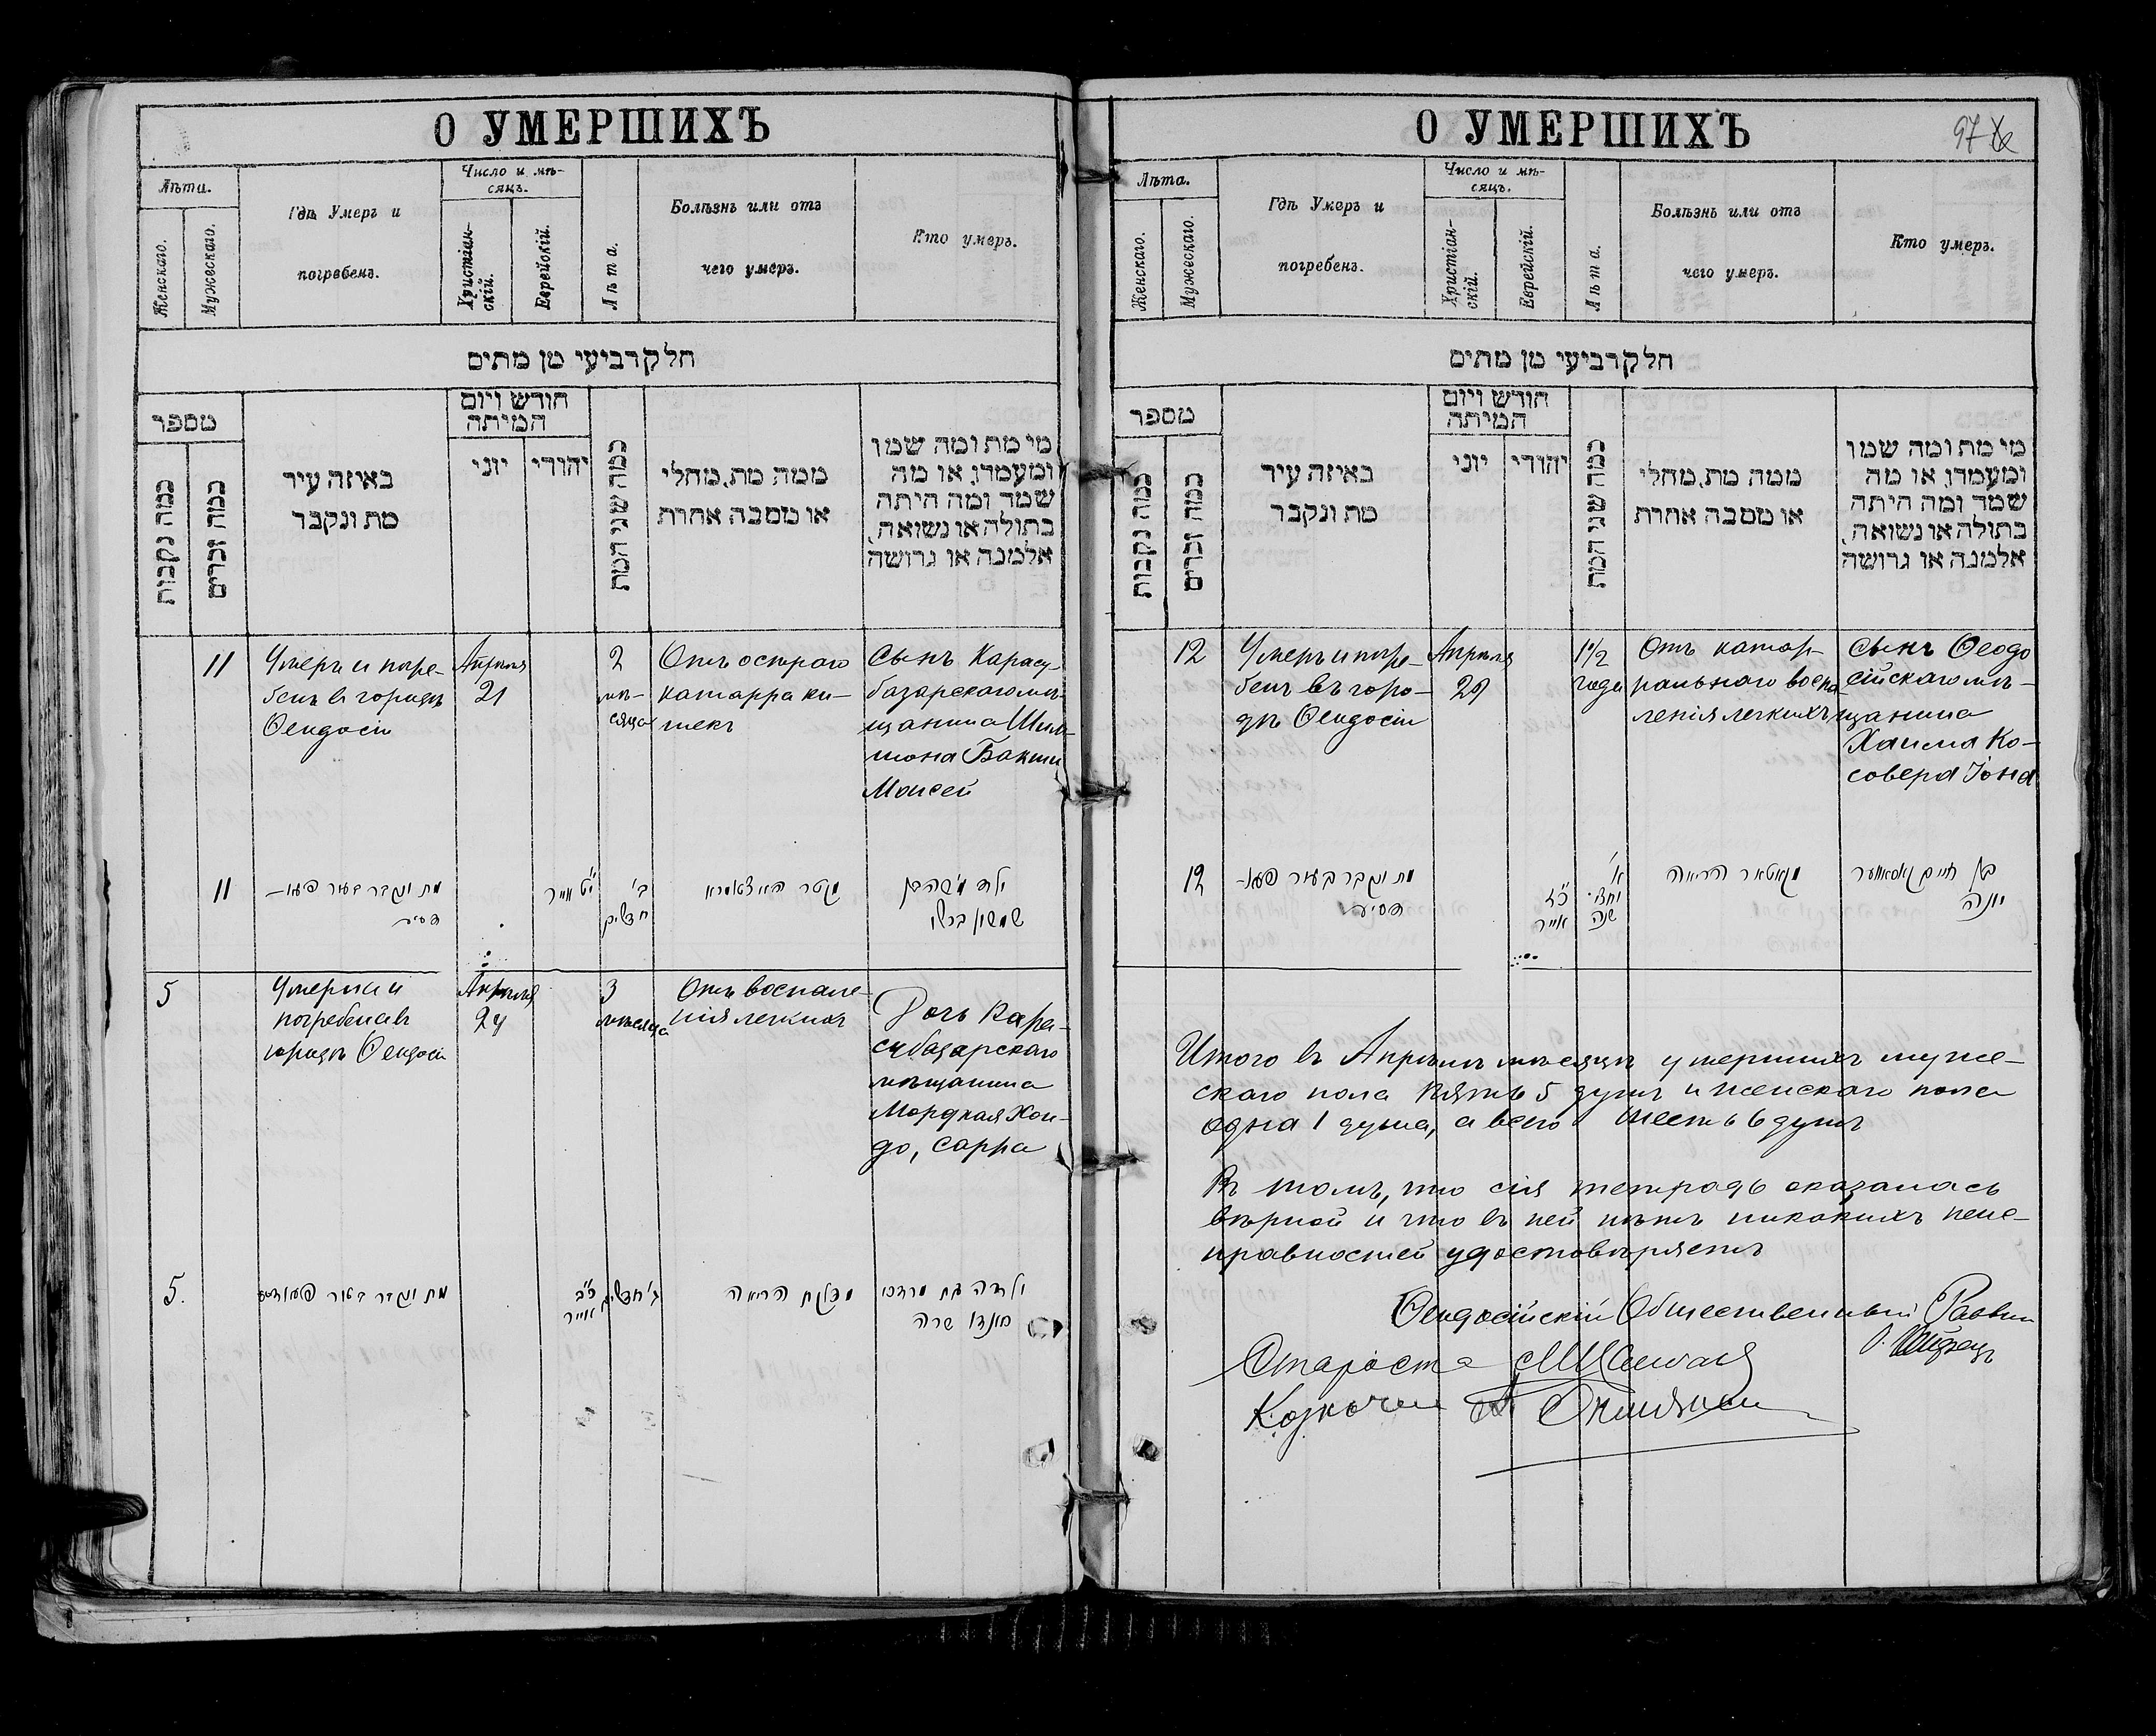 О УМЕРШИХЪ
Лѣта.
Женскаго.
Мужескаго.
Гдѣ Умеръ и
погребенъ.
Число и мѣ-
сяцъ.
Христіан-
скій.
Еврейскій.
Лѣта.
Болѣзнь или отъ
чего умеръ.
Кто умеръ.
חלק רביעי מן מתים
מספר
כמה נקבות
כמה זכרים
באיזה עיר
מת ונקבר
חודש ויום
המיתה
יוני
יהודי
כמה שני המת
ממה מת, מחלי
או מסבה אחרת
מי מת ומה שמו
ומעמדו, או מה
שמד ומה היתה
בתולה או נשואה,
אלמנה או גרושה
11
Умеръ и погре-
бенъ въ городѣ
Ѳеодосіи
Апрѣля
21
2
мѣ-
сяца
Отъ остраго
катарра ки-
шекъ
Сынъ Карасу-
базарскаго мѣ-
щанина Шим-
шона Бакши
Моисей
11
מת ונקבר בעיר פעא-
דסיע
י"ט אייר
ב'
חדשים
ילד משה בן
שמשון בכשי
5
Умерла и
погребена въ
городѣ Ѳеодосіи
Апрѣля
24
3
мѣсяца
Отъ воспале-
нія легкихъ
Дочь Кара-
субазарскаго
мѣщанина
Мордхая Хон-
до, Сарра
5.
מת ונקבר בעיר
כ"ב
אייר
ג' חדשים
דלקת הריאה
ילדה בת מרדכי
חונדו שרה
О УМЕРШИХЪ
97
Лѣта.
Женскаго.
Мужескаго.
Гдѣ Умеръ и
погребенъ.
Число и мѣ-
сяцъ.
Христіан-
скій.
Еврейскій.
Лѣта.
Болѣзнь или отъ
чего умеръ.
Кто умеръ.
חלק רביעי מן מתים
מספר
כמה נקבות
כמה זכרים
באיזה עיר
מת ונקבר
חודש ויום
המיתה
יוני
יהודי
כמה שני המת
ממה מת, מחלי
או מסבה אחרת
מי מת ומה שמו
ומעמדו, או מה
שמד ומה היתה
בתולה או נשואה,
אלמנה או גרושה
12
Умеръ и погре-
бенъ въ горо-
дѣ Ѳеодосіи
Апрѣля
29
1 1/2
года
Отъ катар-
ральнаго воспа-
ленія легкихъ
Сынъ Ѳеодо
сійскаго мѣ-
щанина
Хаима Ко-
совера Іона
12
מת ונקבר בעיר פעא-
דסיע
כ"ז
אייר
א'
וחצי
שנה
קאטאר הריאה
בן חיים קאסאווער
יונה
Итого въ Апрѣлѣ мѣсяцѣ умершихъ муже-
скаго пола пять 5 душъ и женскаго пола
одна 1 душа, а всего шесть 6 душъ
Въ томъ, что сія тетрадь оказалась
вѣрной и что въ ней нѣтъ никакихъ неис-
правностей удостовѣряетъ
Ѳеодосійскій Общественный Раввинъ
Староста
Казначей